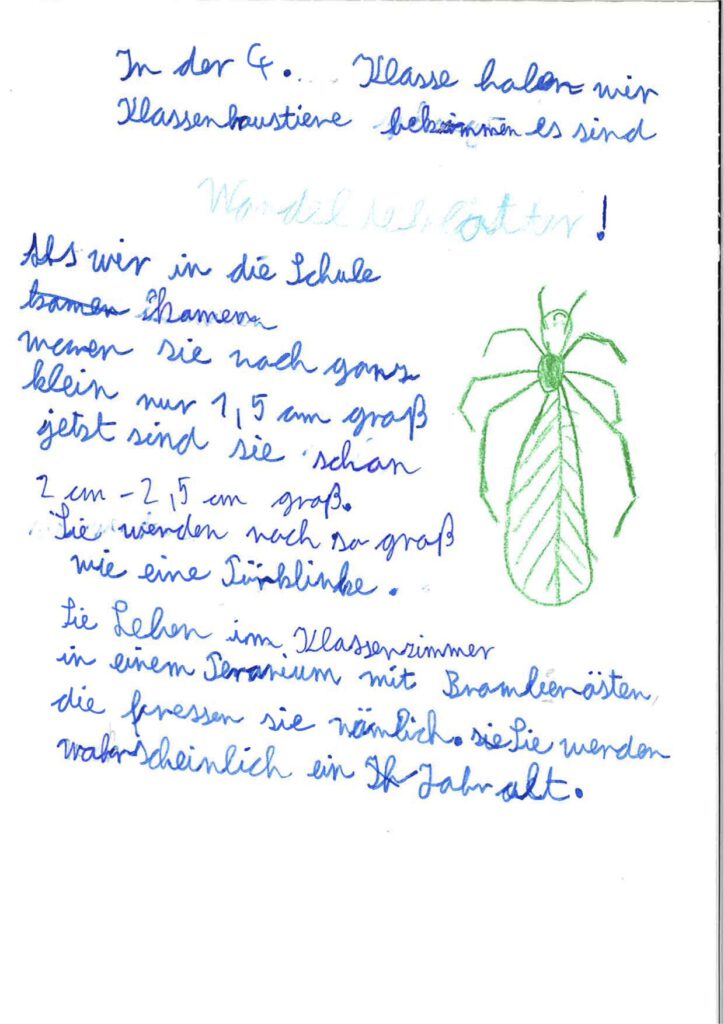 In der 4. Klasse haben wir
Klassenhaustiere bekommen es sind
Wandelnde Blätter!
Als wir in die Schule
kamen
waren sie noch ganz
klein nur 1,5 cm groß
jetzt sind sie schon
2 cm - 2,5 cm groß.
Sie werden noch so groß
wie eine Türklinke.
Sie Leben im Klassenzimmer
in einem Terarium mit Brombeerästen,
die fressen sie nämlich. Sie werden
wahrscheinlich ein Jahr alt.